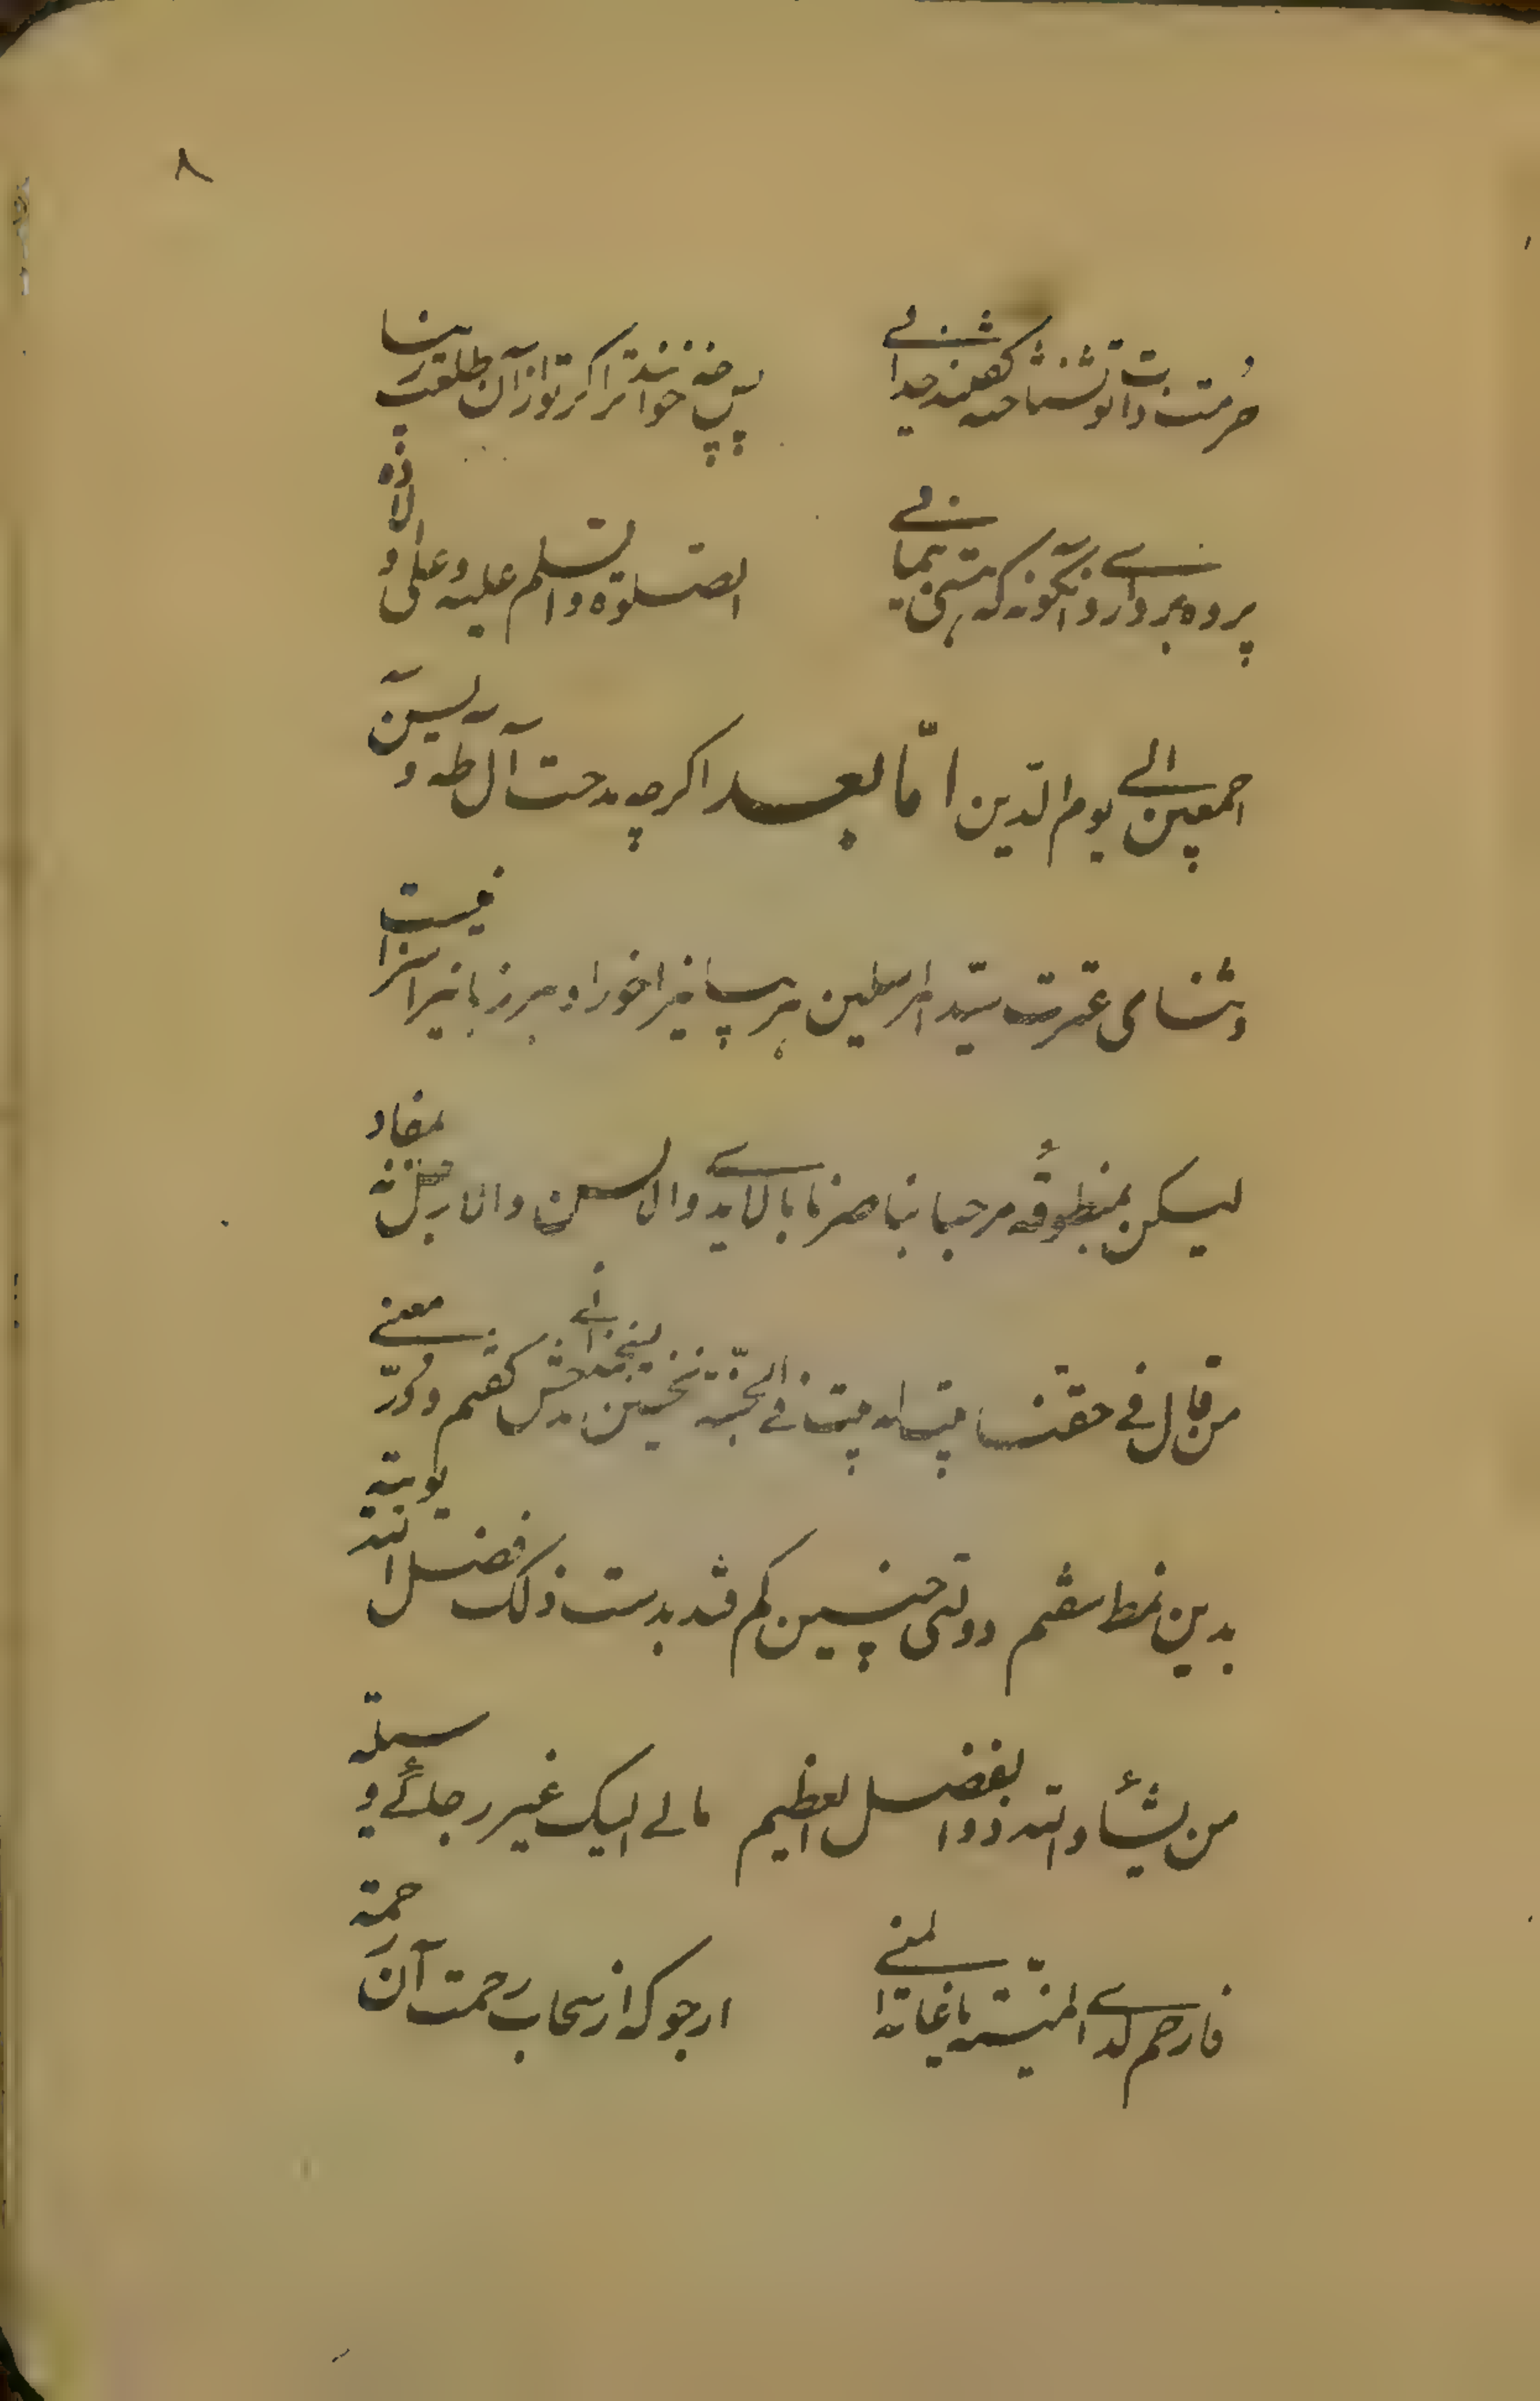 ۸
حُرمت ذات تو نشناخته گفتند خدائی پس چه خوانند ترا گر تو از آن طلعت زیبا
پرده برداری و آنگونه که هستی بنمائی الصّلوة والسّلم علیه و علی اولاده
اجمعین الی یوم الدّین امّا بعد اگرچه مدحت آل طٰه و یٰسین
و ثنای عترت سیّد المرسلین هر را خور او هر زبانیرا سزا نیست
لیکن بمنطوقهٔ مرحبا بناصرنا بالایدی والالسن والارجل بمفاد
من قال فی حقنا بیتا له بیت فی الجنّة نخستین مدحش گفتم و دُرّ معنی
بدین نمط سفتم دولتی چنین کم فتد بدست ذلک فضل الله یوتیه
من یشأ والله ذوالفضل العظیم مالی الیک غیر رجائی وسیلة
فارحم لدی المنیّة یا غایة المنی ارجو که از سحاب رحمت آن رحمة